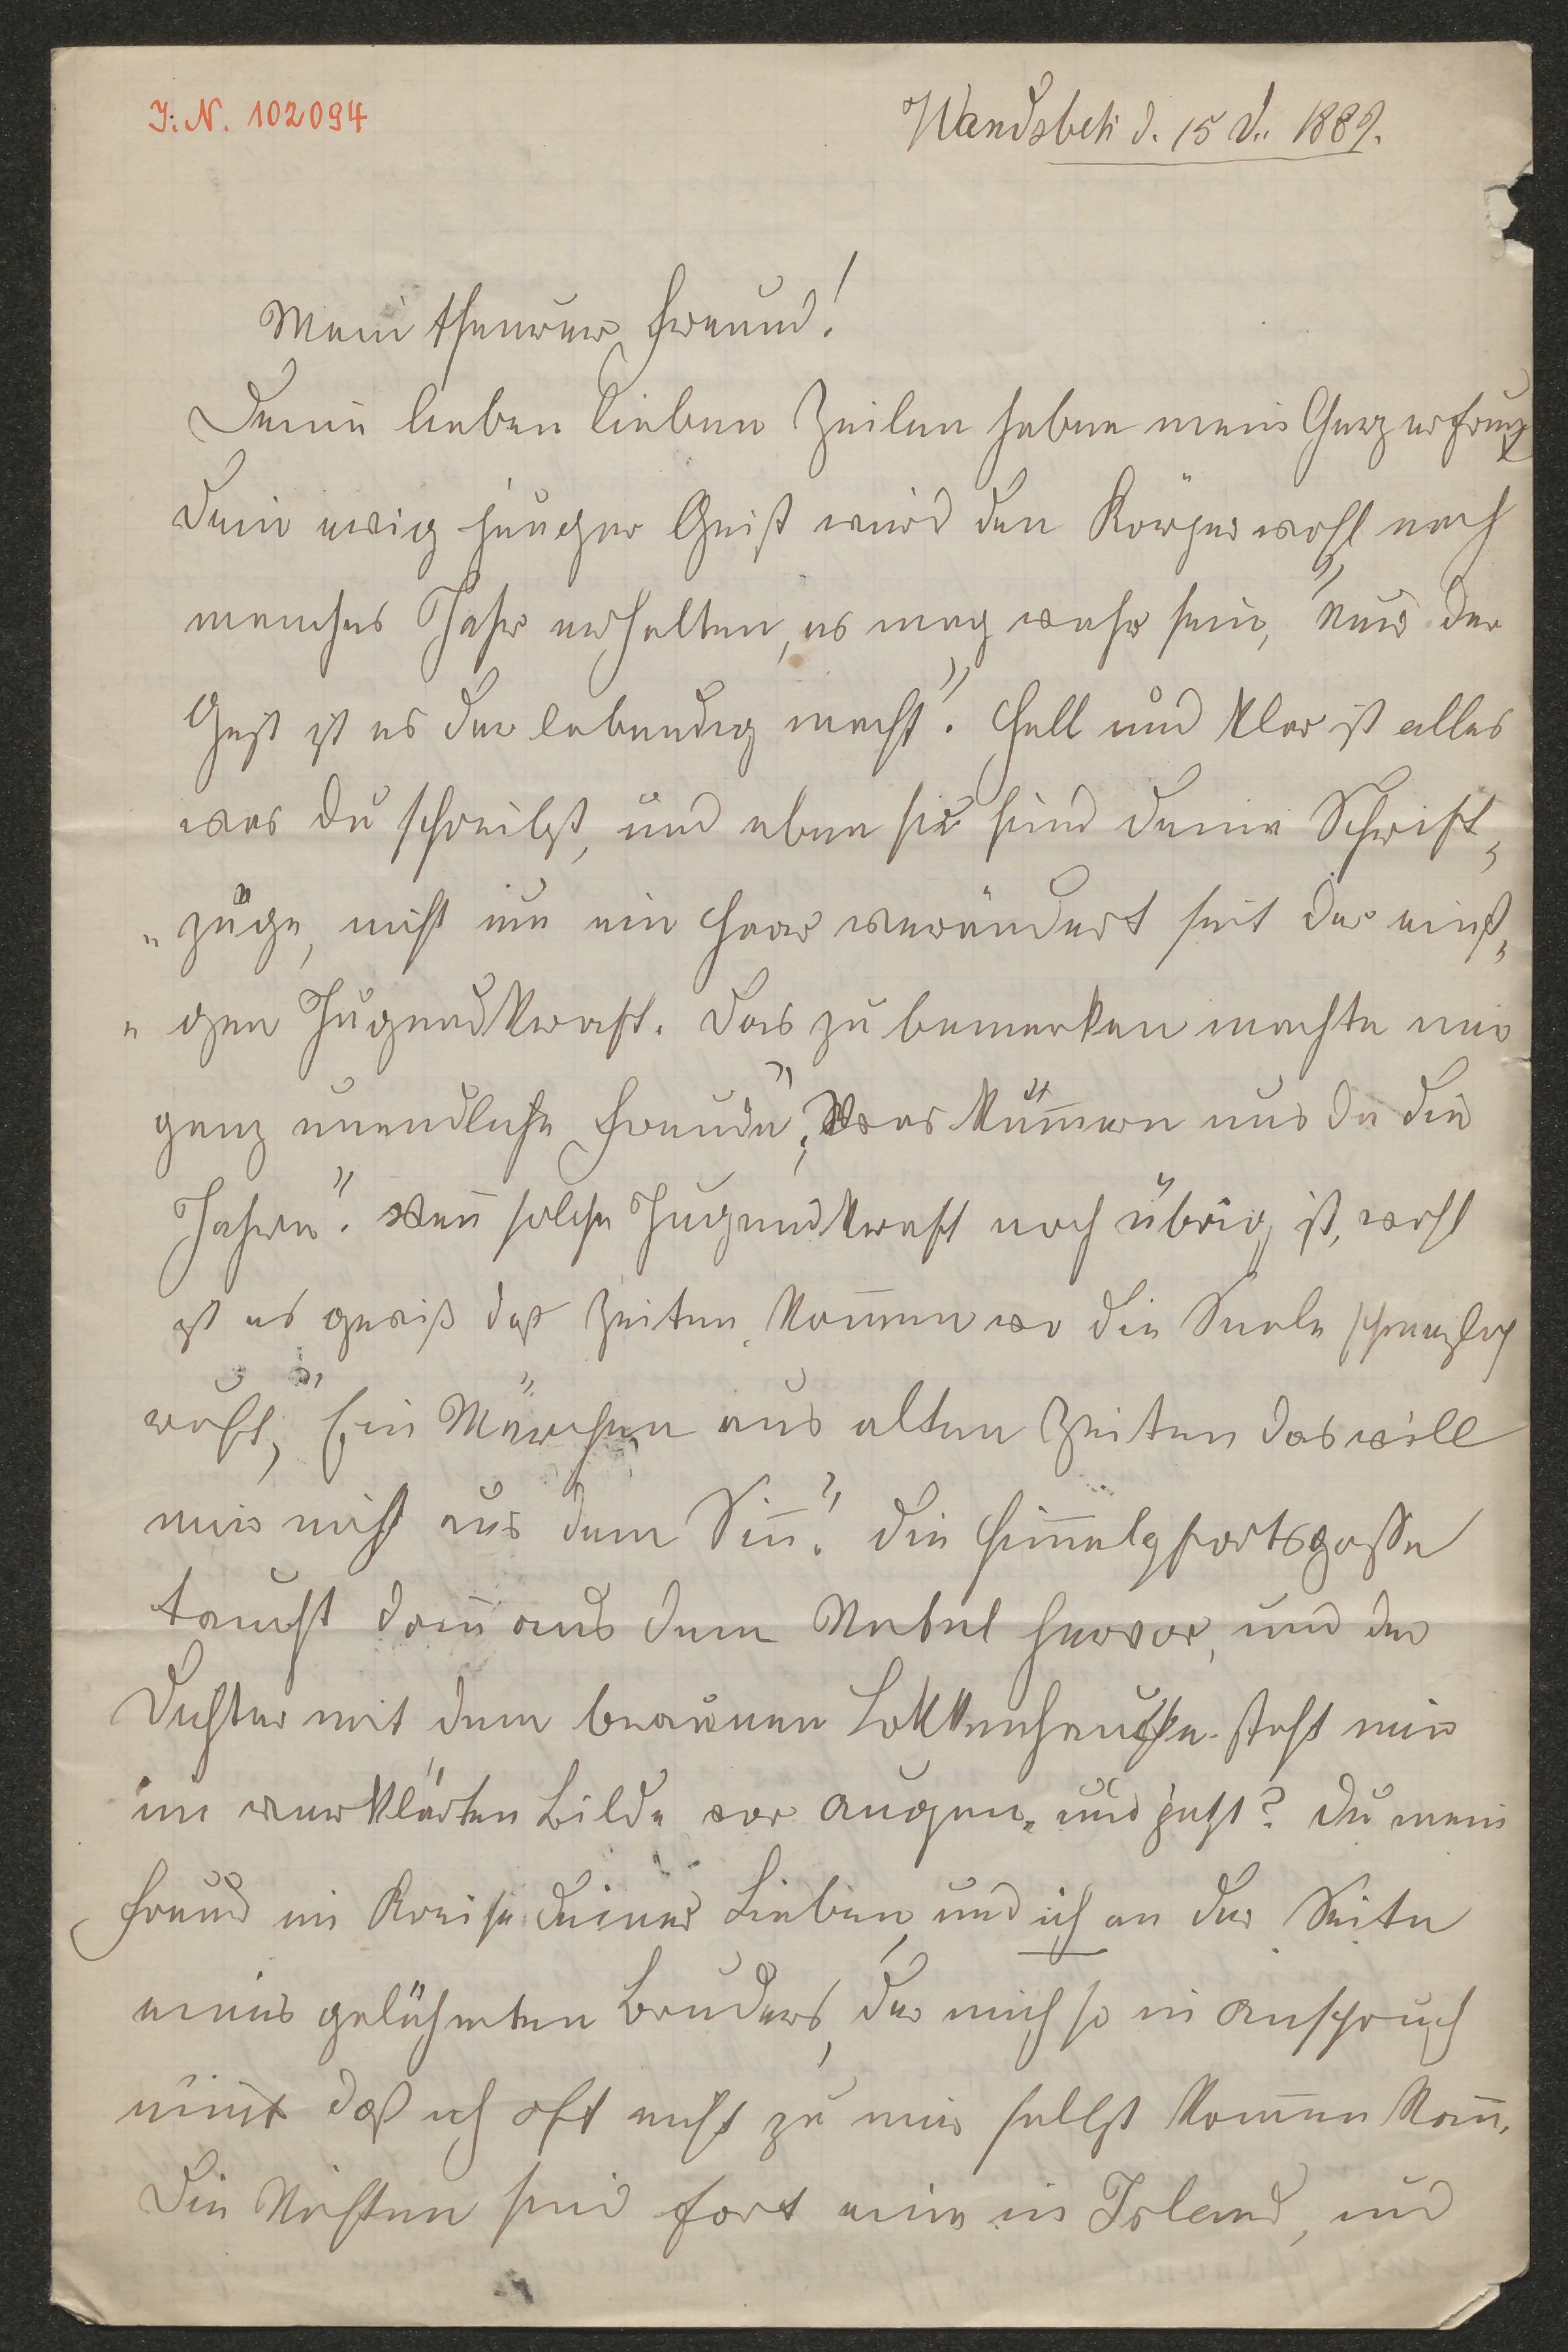 I. N. 102094
Wandsbek d. 15 d.. 1889.
Mein theurer Freund!
Deine lieben lieben Zeilen haben mein Herz erfreut
Dein ewig junger Geist wird den Körper wohl noch
manches Jahr erhalten, es mag wahr sein, "nur der
Geist ist es der lebendig macht". Hell und klar ist alles
was du schreibst, und eben so sind deine Schrift„
„züge, nicht um ein Haar verändert seit der einst„
„gen Jugendkraft. Das zu bemerken machte mir
ganz unendliche Freude, "Was kümern uns da die
Jahre". Wen̄ solche Jugendkraft noch übrig ist, wohl
ist es gewiß daß Zeiten kom̄en wo die Seele schmerzlich
ruft, "Ein Märchen aus alten Zeiten das will
mir nicht aus dem Sin̄". Die Him̄elpfortsgasse
taucht dan̄ aus dem Nebel hervor, und der
Dichter mit dem braunen Lokkenhaupte steht mir
im verklärten Bilde vor Augen, und jetzt? Du mein
Freund im Kreise deiner Lieben, und ich an der Seite
eines gelähmten Bruders, der mich so in Anspruch
nim̄t daß ich oft nicht zu mir selbst kom̄en kan̄.
Die Nichten sind fort eine in Island, und